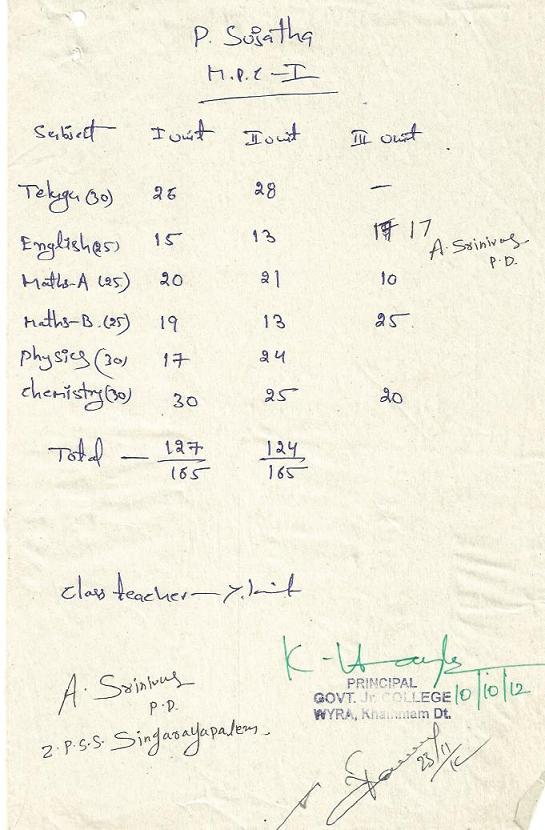 P. Sujatha
M.P.C - I
Subject I unit II unit III unit
Telugu (30) 26 28 —
English (25) 15 13 17 17
A. Srinivas
P.D.
Maths-A (25) 20 21 10
Maths-B. (25) 19 13 25
physics (30) 17 24
chemistry (30) 30 25 20
Total — 127/165 124/165
class teacher —
A. Srinivas
P.D.
Z.P.S.S. Singarayapalem.
PRINCIPAL
GOVT. Jr. COLLEGE 10/10/12
WYRA, Khammam Dt.
23/11/12